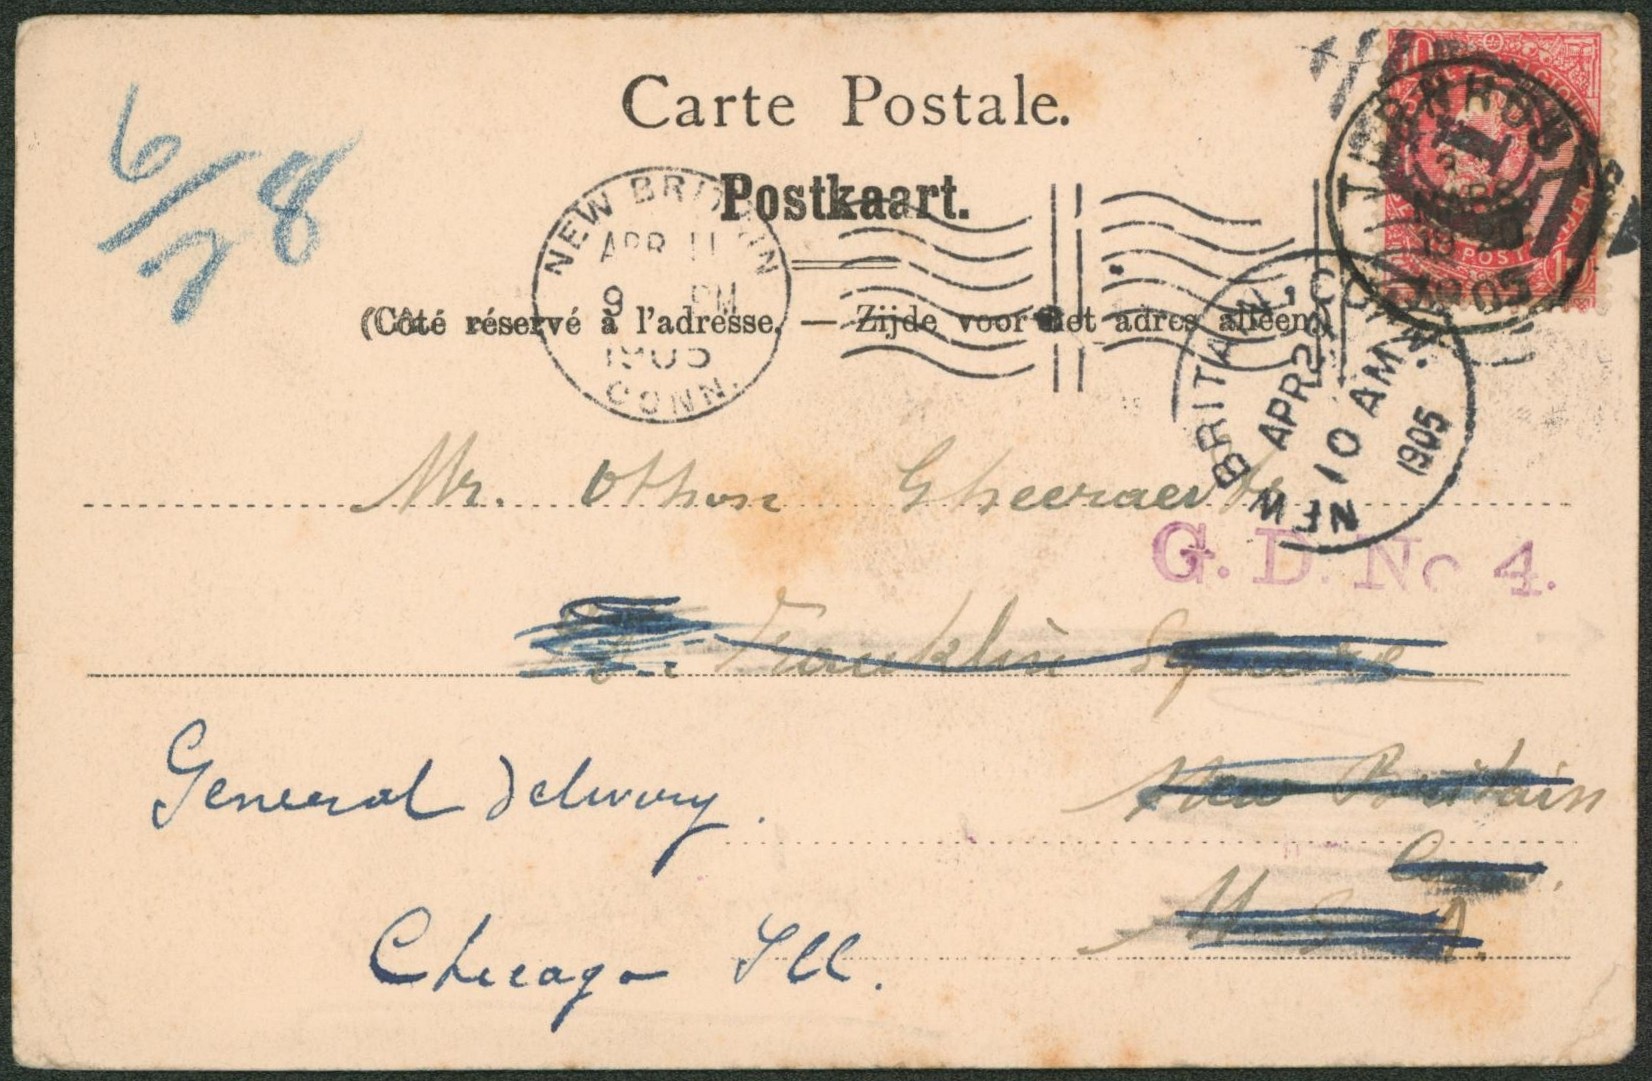 Carte Postale.
Postkaart.
(Côté réservé à l'adresse. — Zijde voor het adres alleen.)
6/7 8
TURNHOUT
1905
NEW BRITAIN
APR 11
9 PM
1905
CONN.
NEW BRITAIN, CONN.
APR 2
10 AM
1905
Mr. Othon Gheeraerts
G. D. No 4.
Franklin Square
New Britain
U. S. A.
General Delivery.
Chicago Ill.